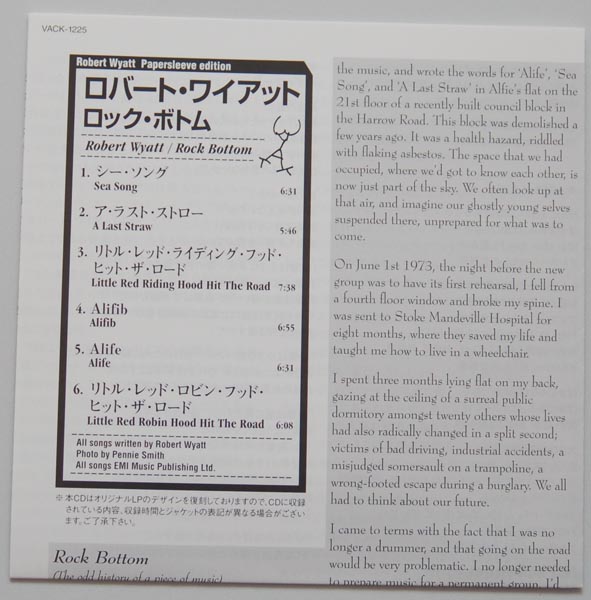 VACK-1225
Robert Wyatt Papersleeve edition
ロバート・ワイアット
ロック・ボトム
Robert Wyatt / Rock Bottom
1. シー・ソング
Sea Song 6:31
2. ア・ラスト・ストロー
A Last Straw 5:46
3. リトル・レッド・ライディング・フッド・
ヒット・ザ・ロード
Little Red Riding Hood Hit The Road 7:38
4. Alifib
Alifib 6:55
5. Alife
Alife 6:31
6. リトル・レッド・ロビン・フッド・
ヒット・ザ・ロード
Little Red Robin Hood Hit The Road 6:08
All songs written by Robert Wyatt
Photo by Pennie Smith
All songs EMI Music Publishing Ltd.
※本CDはオリジナルLPのデザインを復刻しておりますので、CDに収録
されている内容、収録時間とジャケットの表記が異なる場合がござい
ます。ご了承下さい。
Rock Bottom
(The odd history of a piece of music)
the music, and wrote the words for 'Alife', 'Sea
Song', and 'A Last Straw' in Alfie's flat on the
21st floor of a recently built council block in
the Harrow Road. This block was demolished a
few years ago. It was a health hazard, riddled
with flaking asbestos. The space that we had
occupied, where we'd got to know each other, is
now just part of the sky. We often look up at
that air, and imagine our ghostly young selves
suspended there, unprepared for what was to
come.
On June 1st 1973, the night before the new
group was to have its first rehearsal, I fell from
a fourth floor window and broke my spine. I
was sent to Stoke Mandeville Hospital for
eight months, where they saved my life and
taught me how to live in a wheelchair.
I spent three months lying flat on my back,
gazing at the ceiling of a surreal public
dormitory amongst twenty others whose lives
had also radically changed in a split second;
victims of bad driving, industrial accidents, a
misjudged somersault on a trampoline, a
wrong-footed escape during a burglary. We all
had to think about our future.
I came to terms with the fact that I was no
longer a drummer, and that going on the road
would be very problematic. I no longer needed
to prepare music for a permanent group. I'd